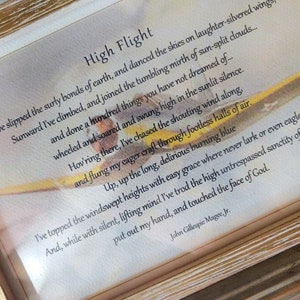 High Flight
slipped the surly bonds of earth, and danced the skies on laughter-silvered wings;
Sunward I've climbed, and joined the tumbling mirth of sun-split clouds...
and done a hundred things you have not dreamed of...
wheeled and soared and swung high in the sunlit silence.
Hov'ring there, I've chased the shouting wind along,
and flung my eager craft through footless halls of air.
Up, up the long, delirious burning blue
I've topped the windswept heights with easy grace where never lark or even eagle
And, while with silent, lifting mind I've trod the high untrespassed sanctity of
put out my hand, and touched the face of God.
John Gillespie Magee, Jr.